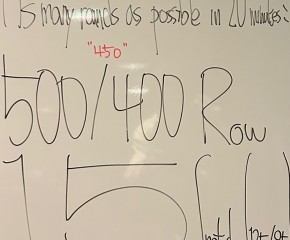 as many rounds as possible in 20 minutes:
"450"
500/400 Row
15